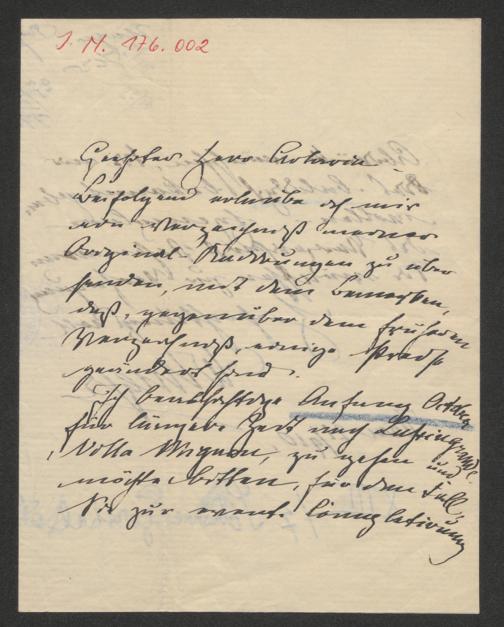 I. N. 176.002
Geehrter Herr Artaria
Beifolgend erlaube ich mir
ein Verzeichniß meiner
Original Radirungen zu über
senden, mit dem Bemerken,
daß, gegenüber dem früheren
Verzeichniß, einige Preise
geändert sind.
Ich beabsichtige Anfang October
für längere Zeit nach Lussingrande,
Villa Mignon, zu gehen und
möchte bitten, für den Fall,
Sie zur event. Completirung